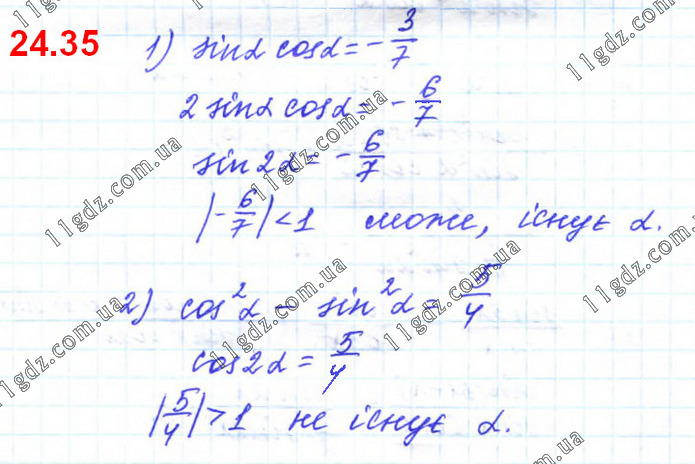 24.35
1) sinα cosα = -3/7
2 sinα cosα = -6/7
sin2α = -6/7
|-6/7| < 1 може, існує α.
2) cos²α - sin²α = 5/4
cos2α = 5/4
|5/4| > 1 не існує α.
11gdz.com.ua
11gdz.com.ua
11gdz.com.ua
11gdz.com.ua
11gdz.com.ua
11gdz.com.ua
11gdz.com.ua
11gdz.com.ua